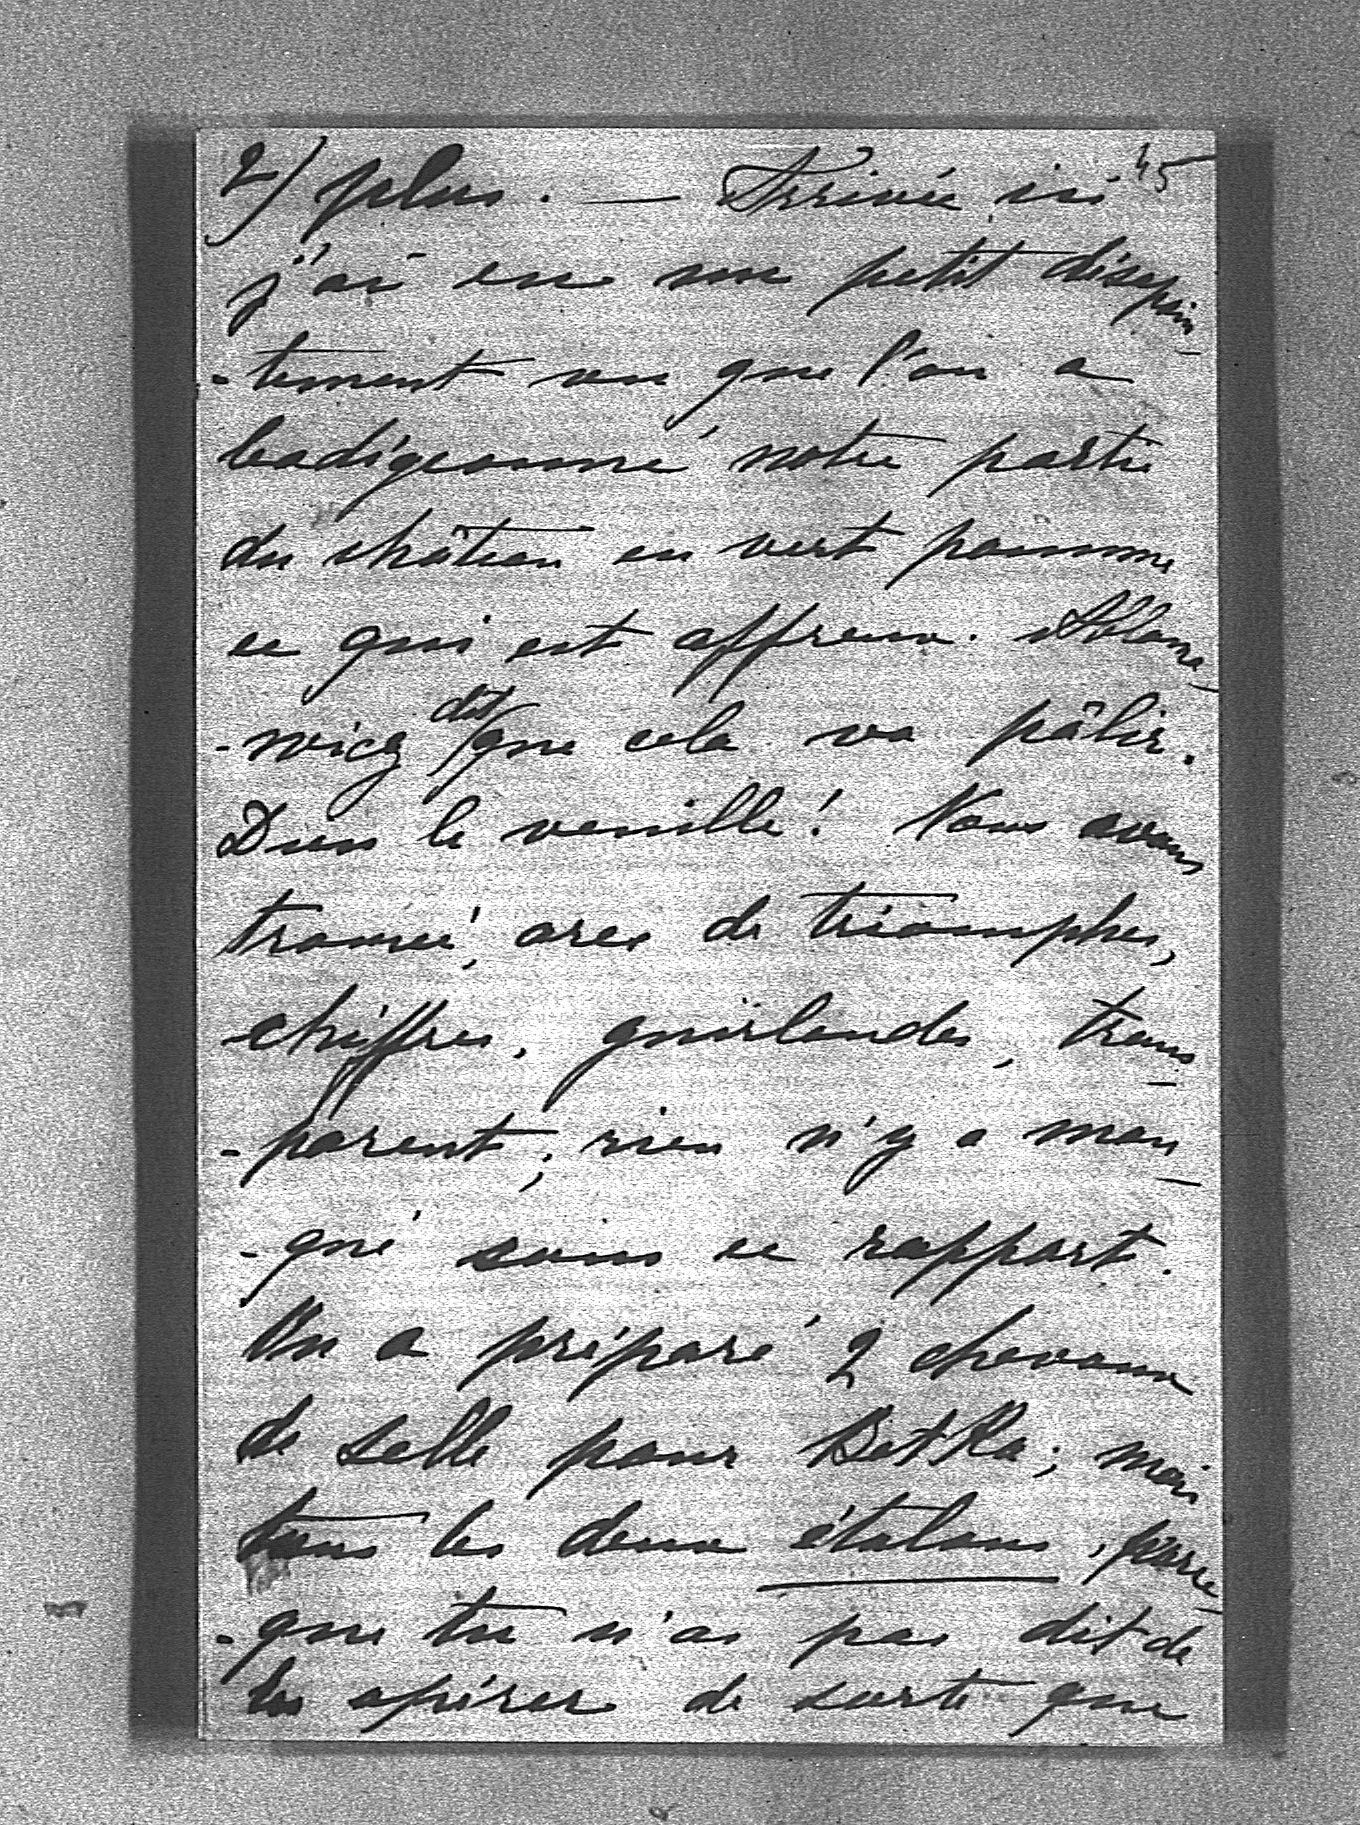 2) plus. — Arrivée ici 45
j'ai eu un petit désapoin
-tement vu que l'on a
badigeonné notre partie
du château en vert pomme
ce qui est affreux. Ablama
-wicz dit que cela va pâlir.
Dieu le veuille! Nous avons
trouvé, arcs de triomphes,
chiffres, guirlandes, trans
-parent; rien n'y a man
-qué sous ce rapport.
On a préparé 2 chevaux
de selle pour Betka; mais
tous les deux étalons, parce
-que tu n'as pas dit de
les opérer de sorte que